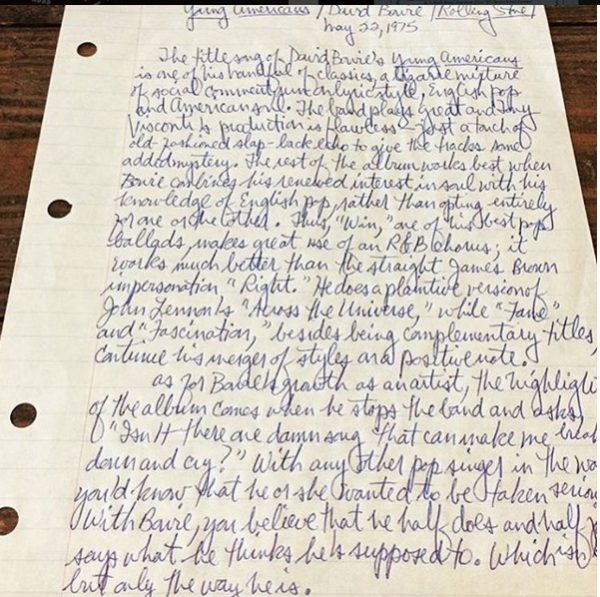 Young Americans / David Bowie / Rolling Stone /
May 22, 1975
The title song of David Bowie's Young Americans
is one of his handful of classics, a bizarre mixture
of social comment, run-on lyric style, English pop
and American soul. The band plays great and Tony
Visconti's production is flawless — just a touch of
old-fashioned slap-back echo to give the tracks some
added mystery. The rest of the album works best when
Bowie combines his renewed interest in soul with his
knowledge of English pop, rather than opting entirely
for one or the other. Thus, "Win," one of his best pop
ballads, makes great use of an R&B chorus; it
works much better than the straight James Brown
impersonation "Right." He does a plaintive version of
John Lennon's "Across the Universe," while "Fame"
and "Fascination," besides being complementary titles,
continue his merger of styles on a positive note.
As for Bowie's growth as an artist, the highlight
of the album comes when he stops the band and asks,
"Isn't there one damn song that can make me break
down and cry?" With any other pop singer in the wo
you'd know that he or she wanted to be taken seriou
With Bowie, you believe that he half does and half
says what he thinks he's supposed to. Which is
but only the way he is.